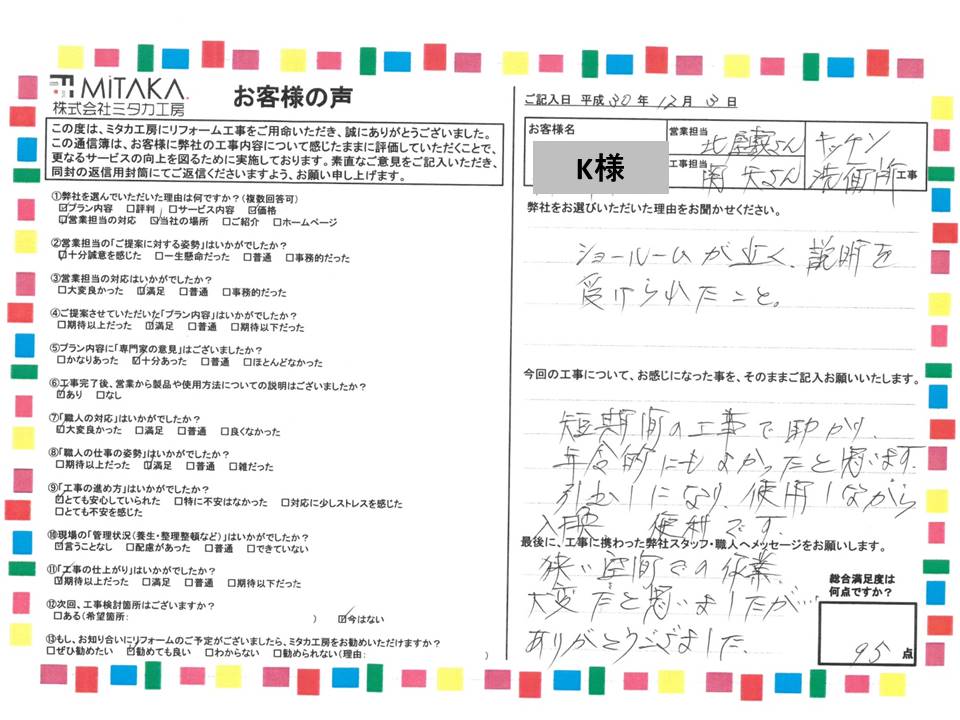 MITAKA
株式会社ミタカ工房
お客様の声
この度は、ミタカ工房にリフォーム工事をご用命いただき、誠にありがとうございました。
この通信簿は、お客様に弊社の工事内容について感じたままに評価していただくことで、
更なるサービスの向上を図るために実施しております。素直なご意見をご記入いただき、
同封の返信用封筒にてご返信くださいますよう、お願い申し上げます。
①弊社を選んでいただいた理由は何ですか?(複数回答可)
☑プラン内容 □評判 □サービス内容 ☑価格
☑営業担当の対応 ☑当社の場所 □ご紹介 □ホームページ
②営業担当の「ご提案に対する姿勢」はいかがでしたか?
☑十分誠意を感じた □一生懸命だった □普通 □事務的だった
③営業担当の対応はいかがでしたか?
□大変良かった ☑満足 □普通 □事務的だった
④ご提案させていただいた「プラン内容」はいかがでしたか?
□期待以上だった ☑満足 □普通 □期待以下だった
⑤プラン内容に「専門家の意見」はございましたか?
□かなりあった ☑十分あった □普通 □ほとんどなかった
⑥工事完了後、営業から製品や使用方法についての説明はございましたか?
☑あり □なし
⑦「職人の対応」はいかがでしたか?
☑大変良かった □満足 □普通 □良くなかった
⑧「職人の仕事の姿勢」はいかがでしたか?
□期待以上だった ☑満足 □普通 □雑だった
⑨「工事の進め方」はいかがでしたか?
☑とても安心していられた □特に不安はなかった □対応に少しストレスを感じた
□とても不安を感じた
⑩現場の「管理状況(養生・整理整頓など)」はいかがでしたか?
☑言うことなし □配慮があった □普通 □できていない
⑪「工事の仕上がり」はいかがでしたか?
☑期待以上だった □満足 □普通 □期待以下だった
⑫次回、工事検討箇所はございますか?
□ある(希望箇所: ) ☑今はない
⑬もし、お知り合いにリフォームのご予定がございましたら、ミタカ工房をお勧めいただけますか?
□ぜひ勧めたい ☑勧めても良い □わからない □勧められない(理由: )
ご記入日 平成 30 年 12 月 13 日
お客様名
K様
営業担当
さん
工事担当
さん
キッチン
洗面所 工事
弊社をお選びいただいた理由をお聞かせください。
ショールームが近く、説明を
受けられたこと。
今回の工事について、お感じになった事を、そのままご記入お願いいたします。
短期間の工事で助かり、
年令的にもよかったと思います。
引出しになり、使用しながら
便利です。
最後に、工事に携わった弊社スタッフ・職人へメッセージをお願いします。
狭い空間での作業、
大変だと思いましたが…
ありがとうございました。
総合満足度は
何点ですか?
95 点